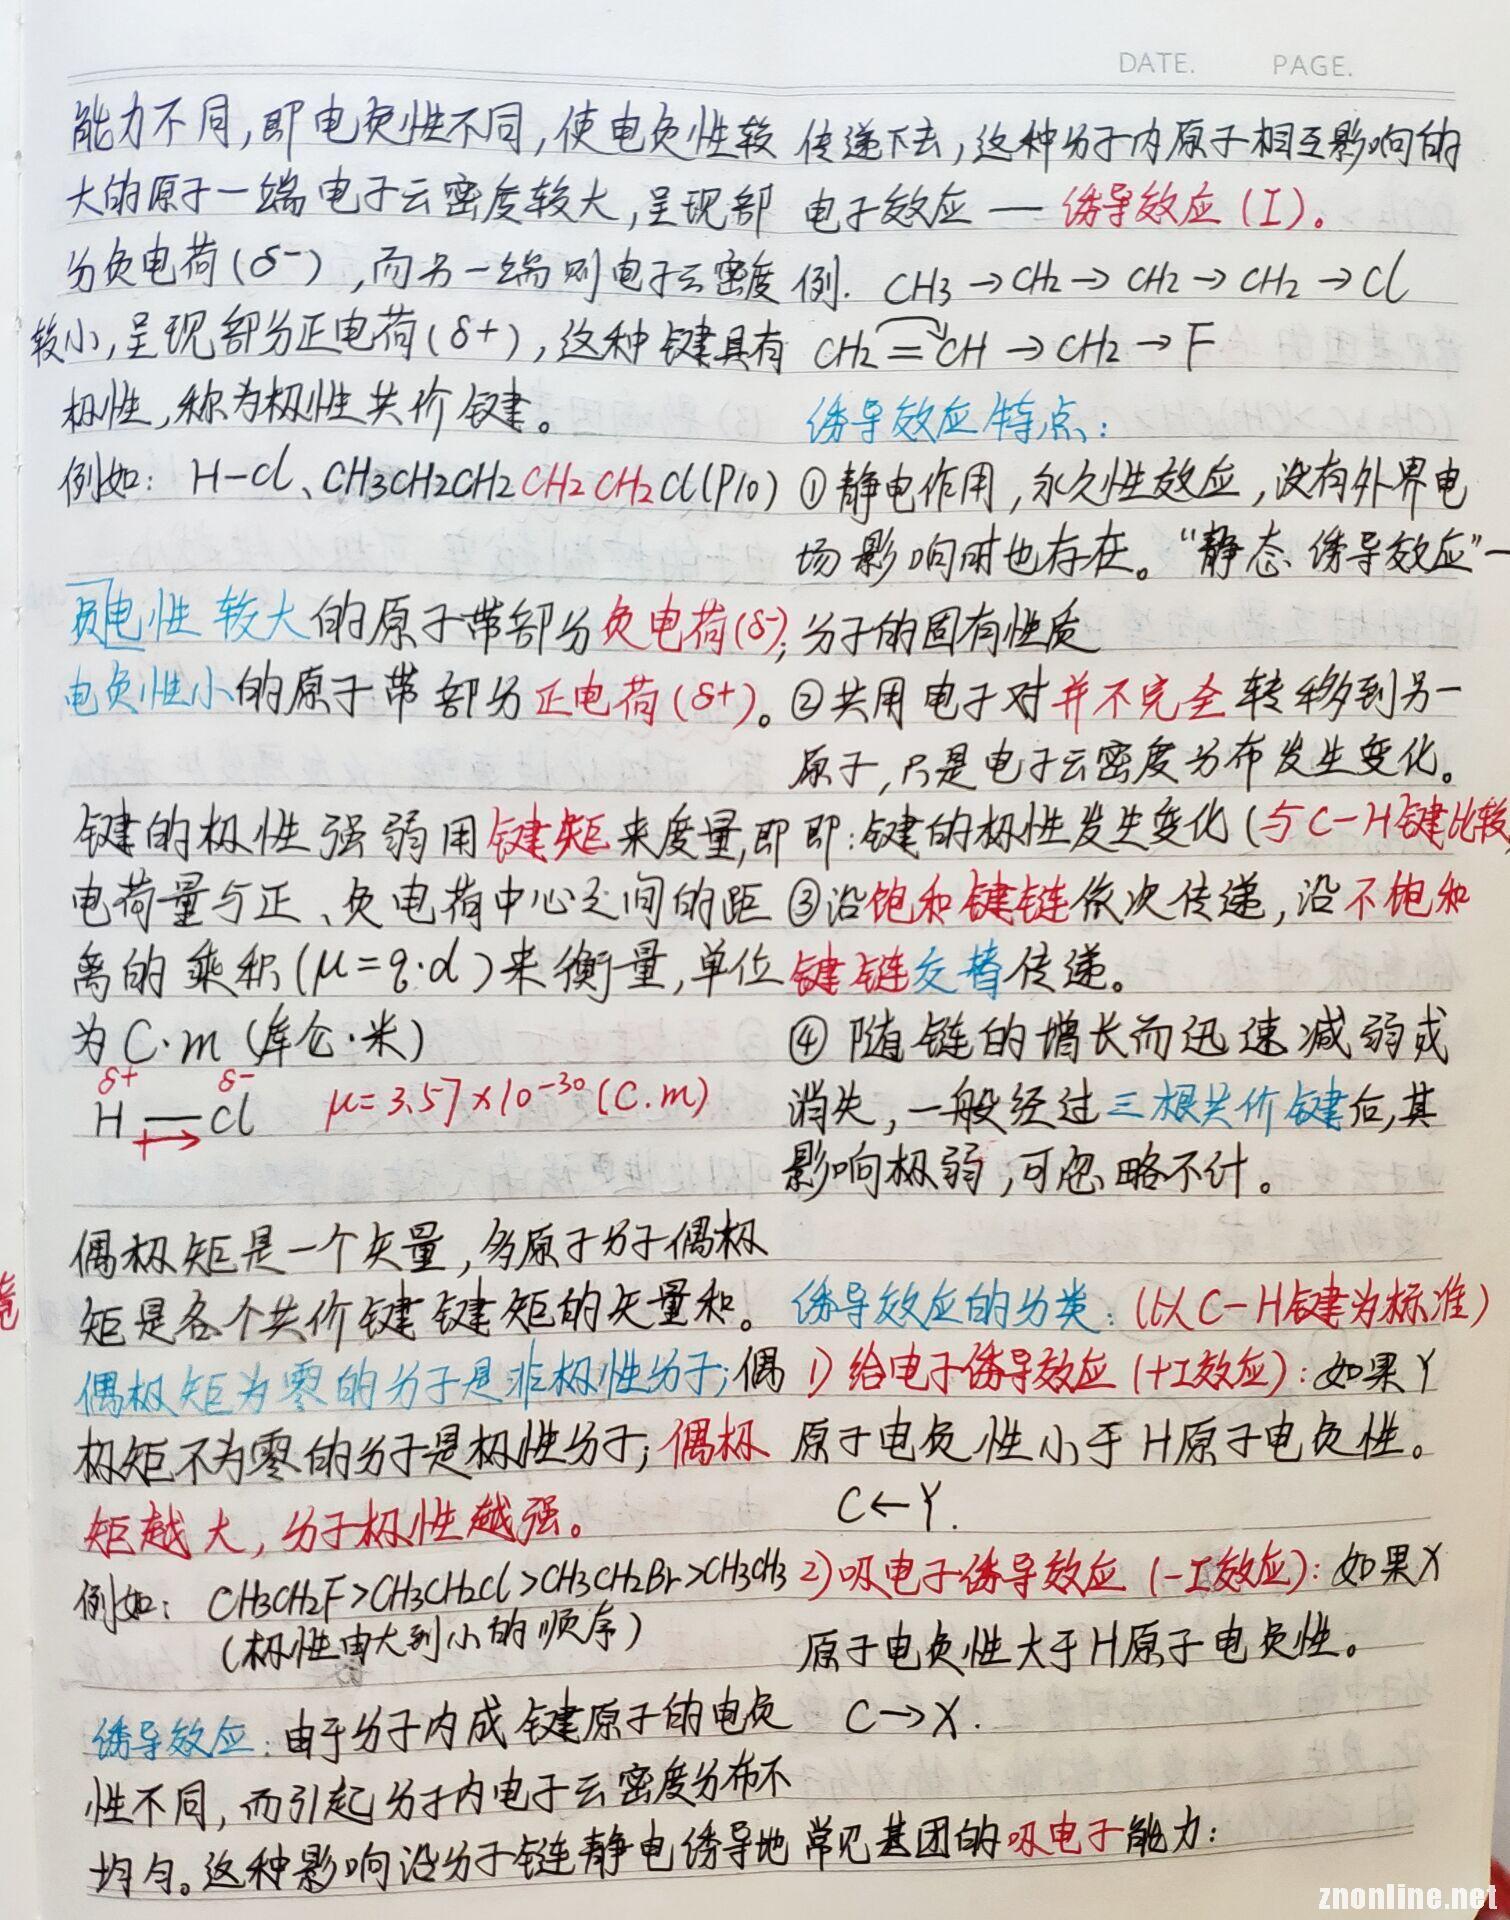 DATE. PAGE.
能力不同，即电负性不同，使电负性较
大的原子一端电子云密度较大，呈现部
分负电荷(δ-)，而另一端则电子云密度
较小，呈现部分正电荷(δ+)，这种键具有
极性，称为极性共价键。
例如：H-Cl、CH3CH2CH2CH2CH2Cl(P10)
负电性较大的原子带部分负电荷(δ-)；
电负性小的原子带部分正电荷(δ+)。
键的极性强弱用键矩来度量，即
电荷量与正、负电荷中心之间的距
离的乘积(μ=q·d)来衡量，单位
为C·m(库仑·米)
δ+ δ-
H—Cl μ=3.57×10-30(C.m)
偶极矩是一个矢量，多原子分子偶极
矩是各个共价键键矩的矢量和。
偶极矩为零的分子是非极性分子；偶
极矩不为零的分子是极性分子；偶极
矩越大，分子极性越强。
例如：CH3CH2F>CH3CH2Cl>CH3CH2Br>CH3CH3
(极性由大到小的顺序)
诱导效应：由于分子内成键原子的电负
性不同，而引起分子内电子云密度分布不
均匀。这种影响沿分子链静电诱导地
传递下去，这种分子内原子相互影响的
电子效应 — 诱导效应(I)。
例. CH3→CH2→CH2→CH2→Cl
CH2=CH→CH2→F
诱导效应特点：
①静电作用，永久性效应，没有外界电
场影响时也存在。“静态诱导效应”—
分子的固有性质
②共用电子对并不完全转移到另一
原子，只是电子云密度分布发生变化。
即：键的极性发生变化(与C-H键比较)
③沿饱和键链依次传递，沿不饱和
键链交替传递。
④随链的增长而迅速减弱或
消失，一般经过三根共价键后，其
影响极弱，可忽略不计。
诱导效应的分类：(以C-H键为标准)
1)给电子诱导效应(+I效应)：如果Y
原子电负性小于H原子电负性。
C←Y.
2)吸电子诱导效应(-I效应)：如果X
原子电负性大于H原子电负性。
C→X.
常见基团的吸电子能力：
znonline.net